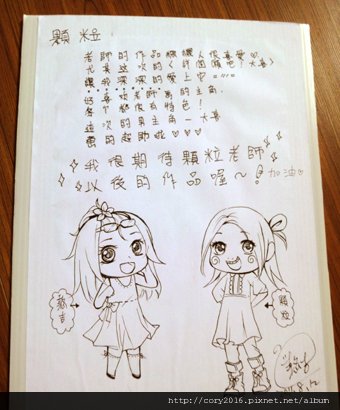 顆粒:
老師的作品都讓人很喜愛♡
大喜
讓我深深的愛上它
好喜歡老師寫的主角,
各個都很有特色!
這次的男主角－大喜
真的超帥啦♡♡♡
我很期待顆粒老師
以後的作品喔～! 加油
顆粒
http://cory2016.pixnet.net/album